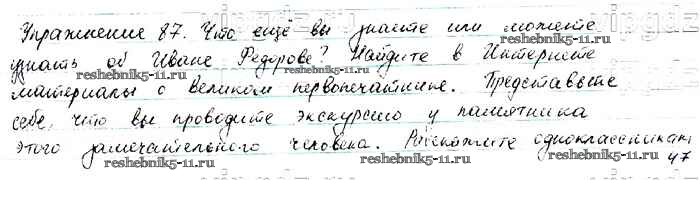 Упражнение 87. Что ещё вы знаете или можете
узнать об Иване Федорове? Найдите в Интернете
reshebnik5-11.ru reshebnik5-11.ru
материалы о великом первопечатнике. Представьте
себе, что вы проводите экскурсию у памятника
этого замечательного человека. Расскажите одноклассникам
reshebnik5-11.ru reshebnik5-11.ru
47